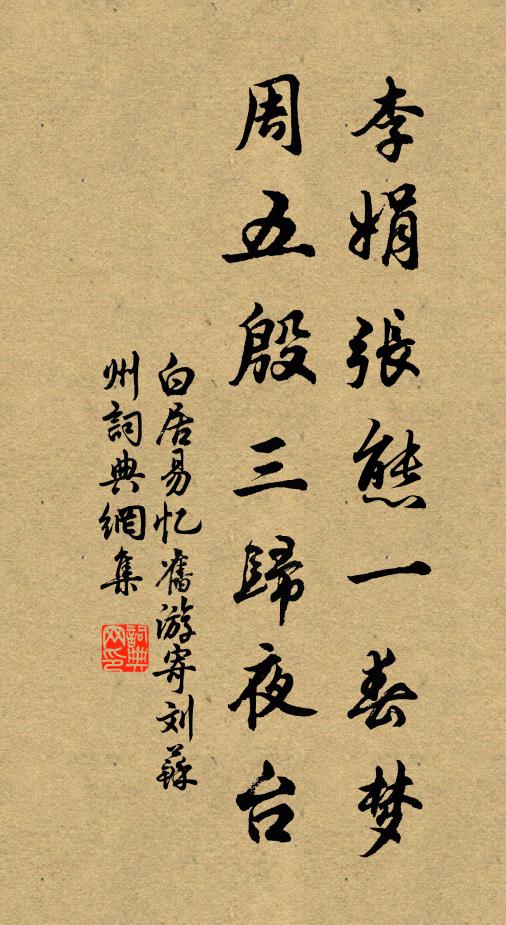 李娟張態一春梦
周五殷三歸夜台
白居易忆舊游寄刘蘇
州詞典網集
詞典网印